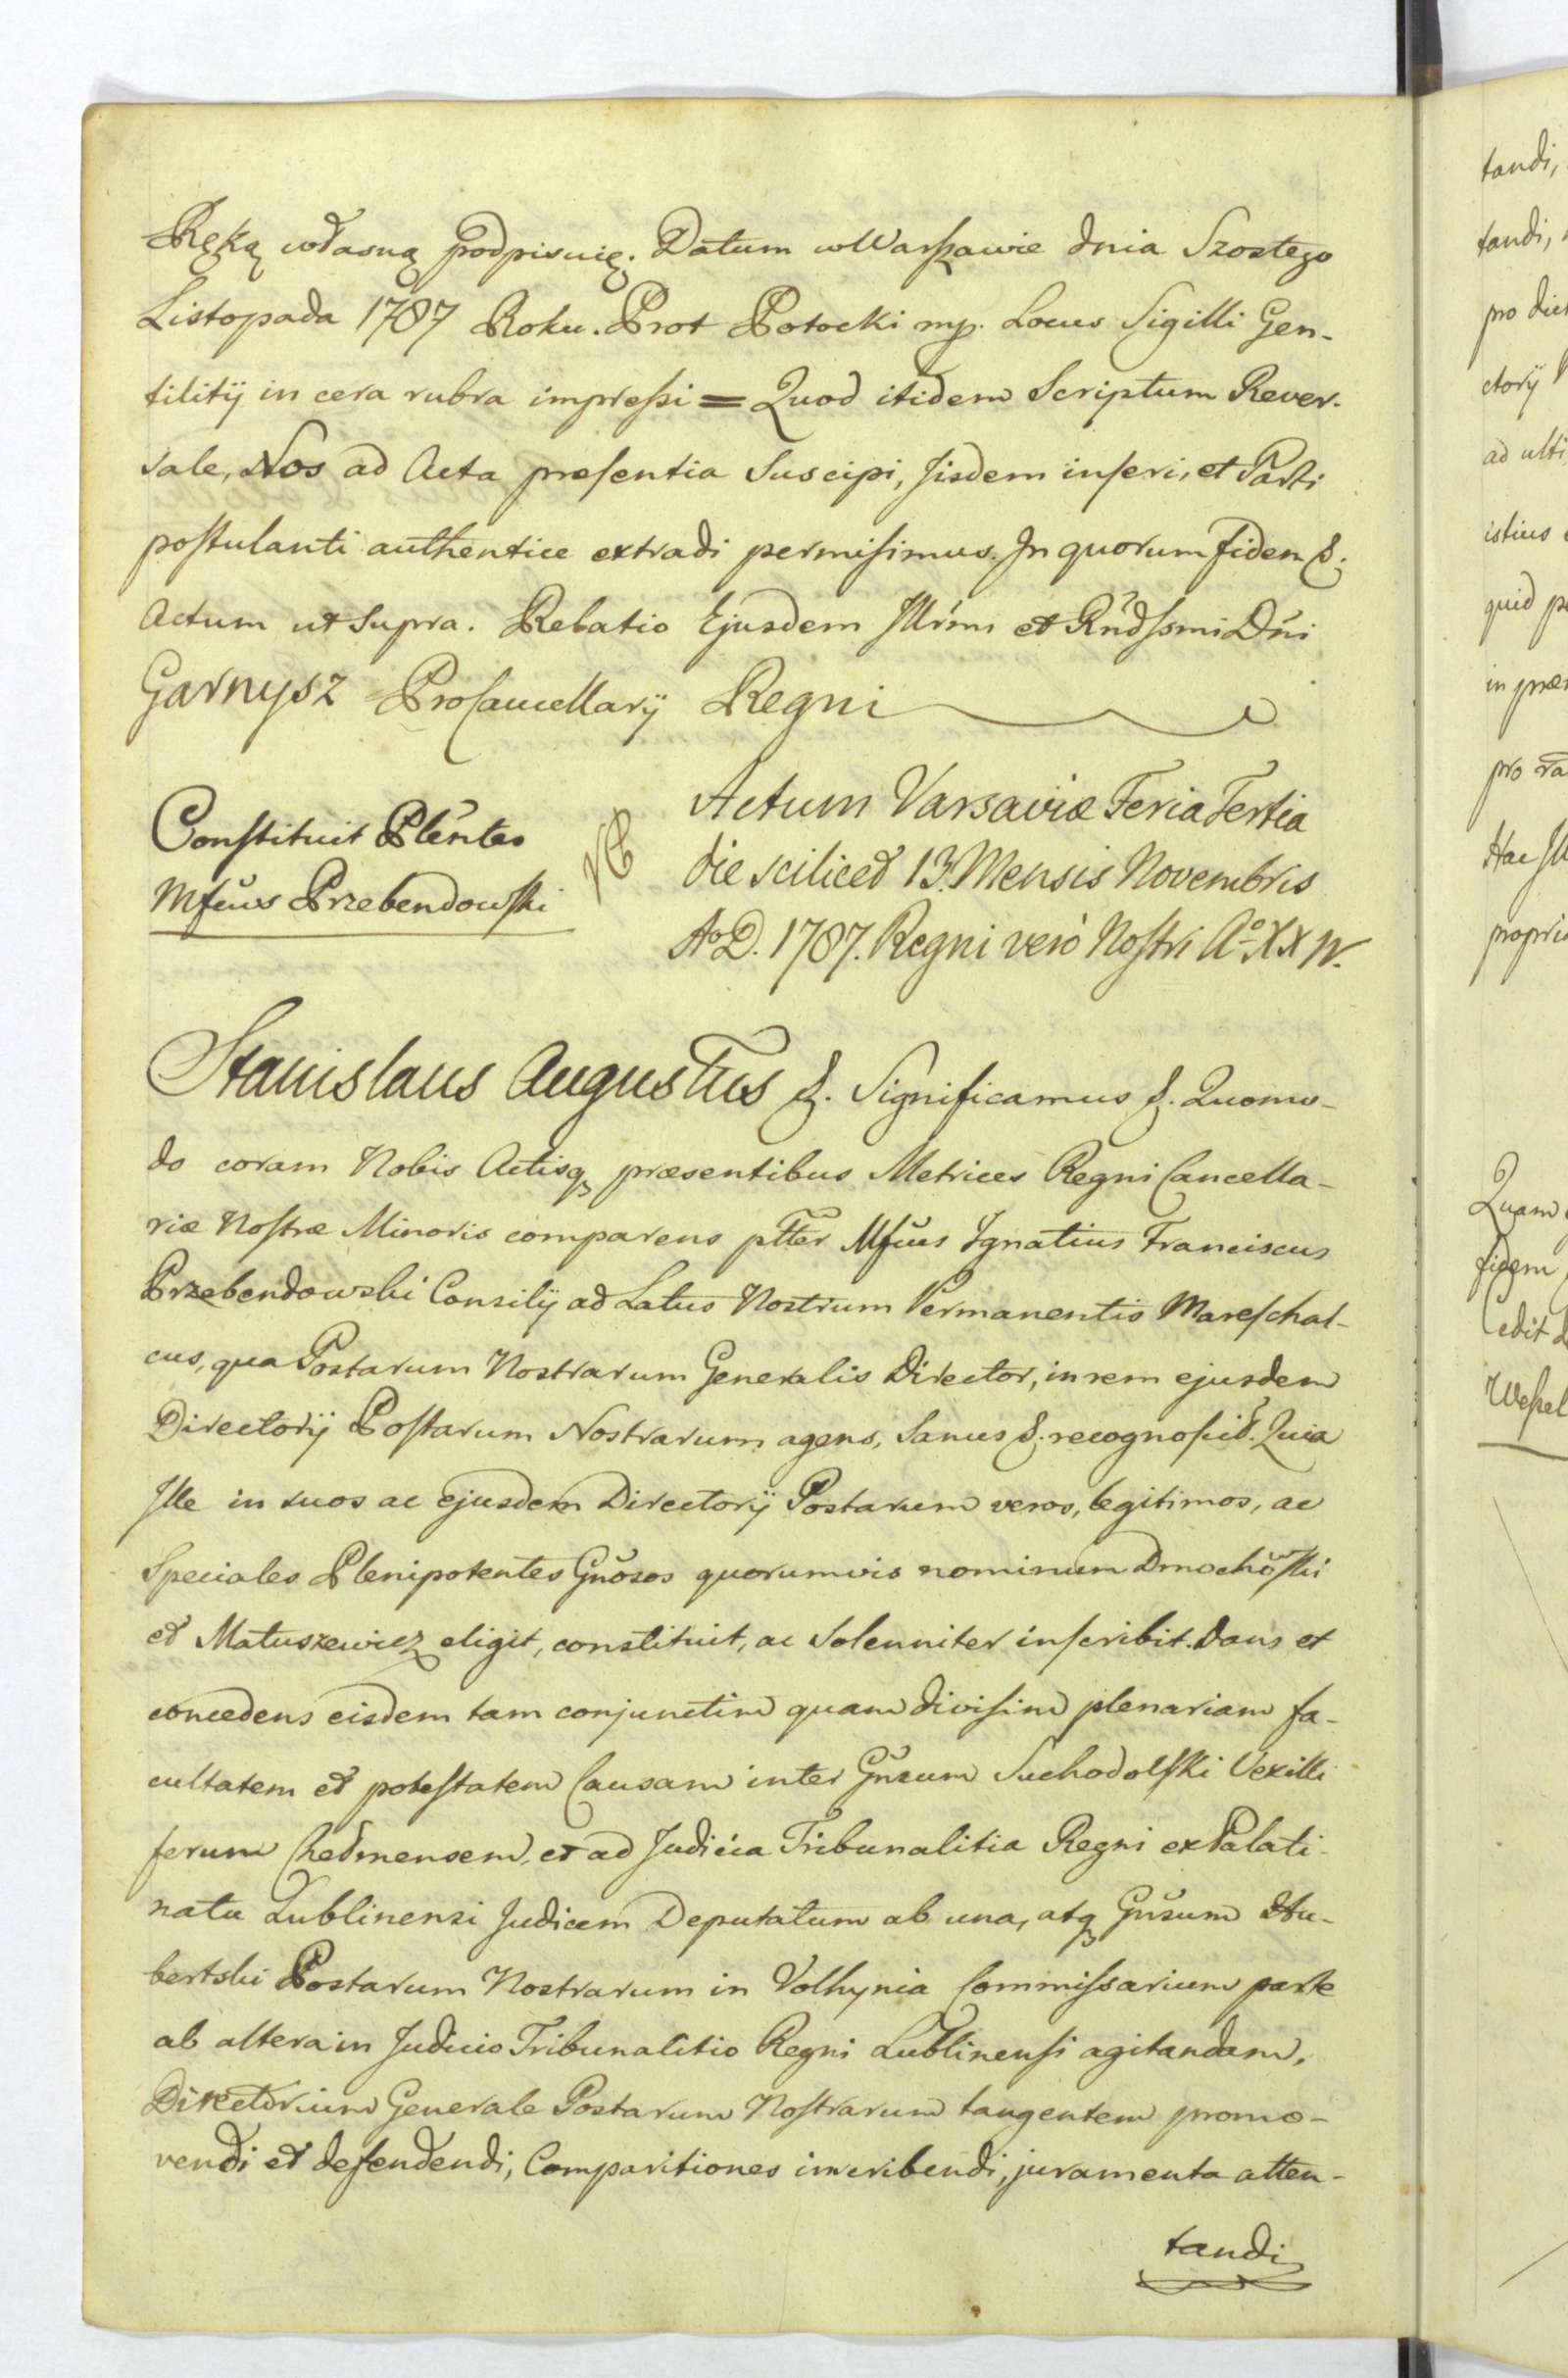 Ręką własną podpisuię. Datum w Warszawie dnia Szostego
Listopada 1787 Roku. Prot Potocki mp. Locus Sigilli Gen-
tilitij in cera rubra impressi = Quod itidem Scriptum Rever-
sale, Nos ad Acta præsentia Suscipi, Jisdem inseri, et Parti
postulanti authentice extradi permisimus. In quorum fidem &.
Actum ut Supra. Relatio Ejusdem Jllrmi et Rndssmi Dni
Garnysz ProCancellarij Regni
Constituit Plentes
Mfcus Przebendowski
Actum Varsaviæ Feria Tertia
die scilicet 13. Mensis Novembris
AoD. 1787. Regni verò Nostri Ao XXIV.
Stanislaus Augustus &. Significamus &. Quomo-
do coram Nobis Actisq præsentibus Metrices Regni Cancella-
riæ Nostræ Minoris comparens ptter Mfcus Ignatius Franciscus
Przebendowski Consilij ad Latus Nostrum Permanentis Mareschal-
cus, qua Postarum Nostrarum Generalis Director, in rem ejusdem
Directorij Postarum Nostrarum agens, Sanus &. recognoscit. Quia
Jlle in suos ac ejusdem Directorij Postarum veros, legitimos, ac
Speciales Plenipotentes Gnosos quorumvis nominum Dmochowski
et Matuszewicz eligit, constituit, ac Solenniter inscribit. Dans et
concedens eisdem tam conjunctim quam divisim plenariam fa-
cultatem et potestatem Causam inter Gnsum Suchodolski Vexilli
ferum Chelmensem, et ad Judicia Tribunalitia Regni ex Palati-
natu Lublinensi Judicem Deputatum ab una, atq Gnsum Hu-
bertski Postarum Nostrarum in Volhynia Commissarium parte
ab altera in Judicio Tribunalitio Regni Lublinensi agitandam,
Directorium Generale Postarum Nostrarum tangentem promo-
vendi et defendendi, Comparitiones inscribendi, juramenta atten-
tandi
tandi,
tandi,
ctorij
ad ulti
istius
quid
propri
Quam
fidem
Cedit
Wessel